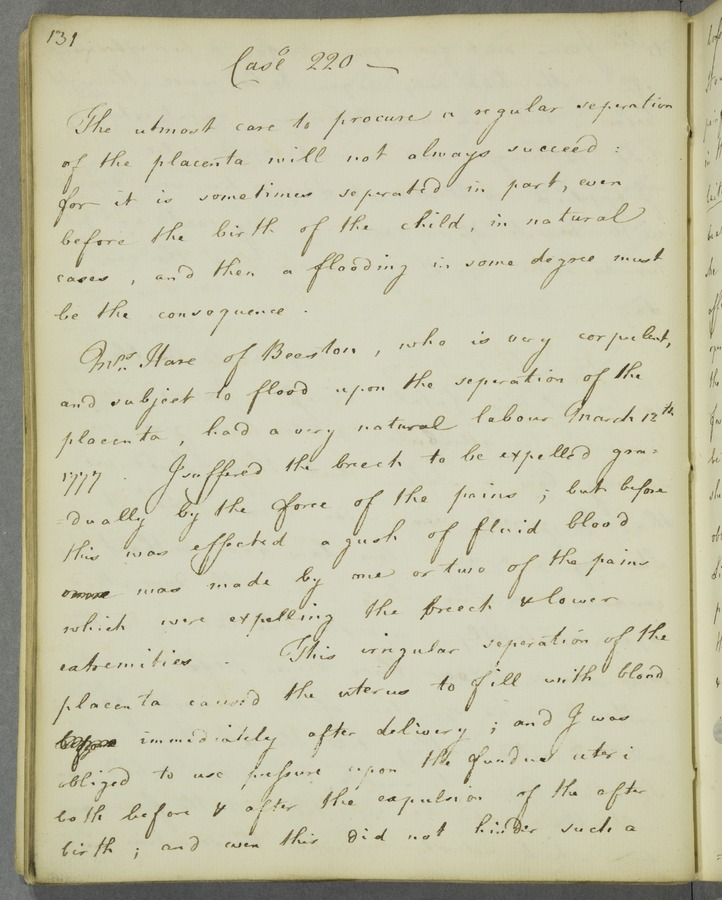 131
Case 220 —
The utmost care to procure a regular seperation
of the placenta will not always succeed :
for it is sometimes seperated in part, even
before the birth of the child, in natural
cases, and then a flooding in some degree must
be the consequence.
Mrs. Hare of Beeston, who is very corpulent,
and subject to flood upon the seperation of the
placenta, had a very natural labour March 12th
1777. I suffered the breech to be expelled gra=
=dually by the force of the pains ; but before
this was effected a gush of fluid blood
was made by one or two of the pains
which were expelling the breech & lower
extremities. This irregular seperation of the
placenta caused the uterus to fill with blood
immediately after delivery ; and I was
obliged to use pressure upon the fundus uteri
both before & after the expulsion of the after
birth ; and even this did not hinder such a